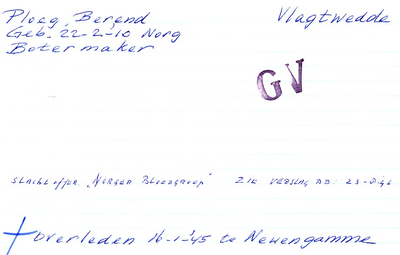 Ploeg, Berend Vlagtwedde
Geb. 22-2-10 Norg
Botermaker
GV
Slachtoffer „Norger Bloedgroep" Zie verslag
† overleden 16-1-'45 te Neuengamme